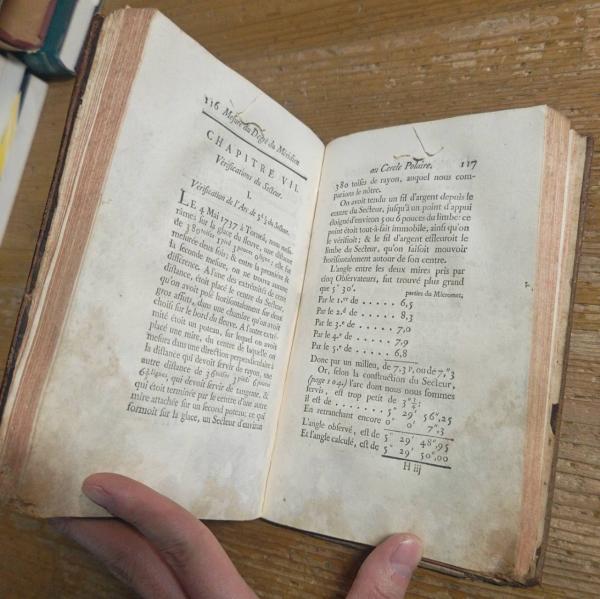 116 Mesure du Degré du Méridien
CHAPITRE VII.
Vérifications du Secteur.
I.
Vérification de l'Arc de 5°½ du Secteur.
LE 4 Mai 1737 à Torneå, nous mesu-
râmes sur la glace du fleuve, une distance
de 380toises, 1pied 3pouces 0lignes; elle fut
mesurée deux fois; & entre la première &
la seconde mesure, on ne trouva aucune
différence. A l'une des extrémités de cette
distance, étoit placé le centre du Secteur,
qu'on avoit posé horisontalement sur deux
gros affuts, dans une chambre qu'on avoit
choisi sur le bord du fleuve. A l'autre extré-
mité étoit un poteau, sur lequel on avoit
placé une mire, du centre de laquelle on
mesura dans une direction perpendiculaire à
la distance qui devoit servir de rayon, une
autre distance de 36toises 3pieds 6pouces
6⅔lignes, qui devoit servir de tangente, &
qui étoit terminée par le centre d'une autre
mire attachée sur un second poteau; ce qui
formoit sur la glace, un Secteur d'environ
au Cercle Polaire. 117
380 toises de rayon, auquel nous com-
parions le nôtre.
On avoit tendu un fil d'argent depuis le
centre du Secteur, jusqu'à un point d'appui
éloigné d'environ 5 ou 6 pouces du limbe: ce
point étoit tout-à-fait immobile, ainsi qu'on
le vérifioit; & le fil d'argent effleuroit le
limbe du Secteur, qu'on faisoit mouvoir
horisontalement autour de son centre.
L'angle entre les deux mires pris par
cinq Observateurs, fut trouvé plus grand
que 5° 30'. parties du Micromet.
Par le 1.er de . . . . . 6,5
Par le 2.d de . . . . . 8,3
Par le 3.e de . . . . . 7,0
Par le 4.e de . . . . . 7,9
Par le 5.e de . . . . . 6,8
Donc par un milieu, de 7.3 p, ou de 7,"3
Or, selon la construction du Secteur,
(page 104.) l'arc dont nous nous sommes
servis, est trop petit de 3"¾;
il est de . . . . . . . . 5° 29' 56",25
En retranchant encore 0° 0' 7",3
L'angle observé, est de 5° 29' 48",95
Et l'angle calculé, est de 5° 29' 50",00
H iij